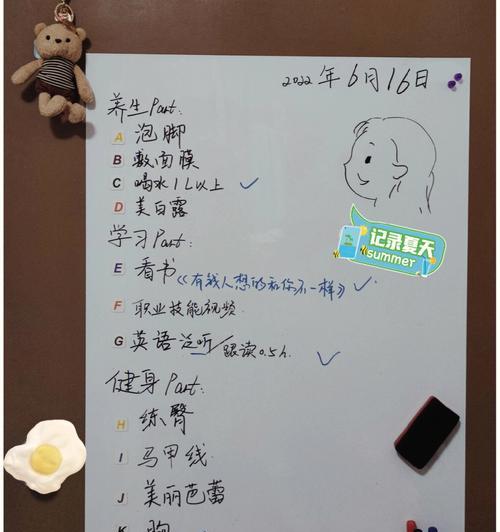 2022年6月16日
养生Part:
A 泡脚
B 敷面膜
C 喝水1L以上 ✓
D 美白露
记录夏天
summer
学习Part:
E 看书《有钱人想的和你不一样》 ✓
F 职业技能视频
G 英语泛听/跟读0.5h. ✓
健身Part:
H 练臀
I 马甲线
J 美丽芭蕾
K 胸